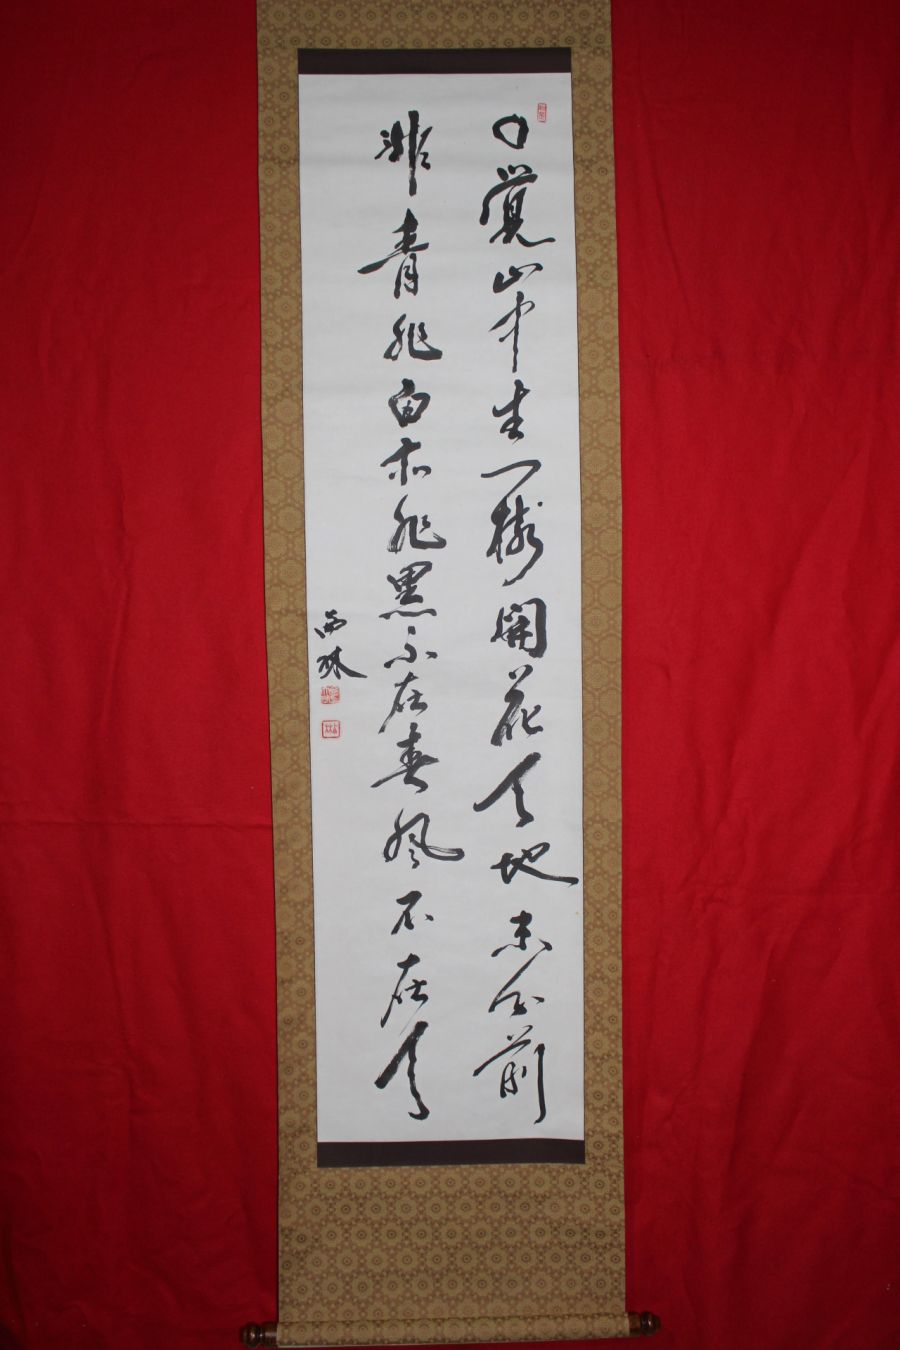 圓覺山中生一樹開花天地未分前
非青非白亦非黑不在春風不在天